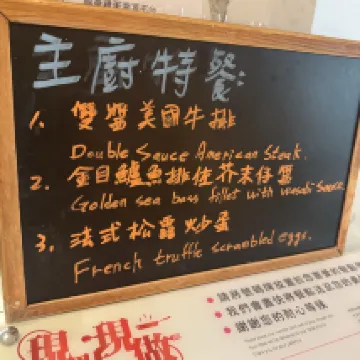 主廚特餐:
1. 雙醬美國牛排
Double Sauce American Steak.
2. 金目鱸魚排佐芥末仔醬
Golden sea bass fillet with wasabi sauce.
3. 法式松露炒蛋
French truffle scrambled eggs.
謝謝您的耐心等候
現 現做